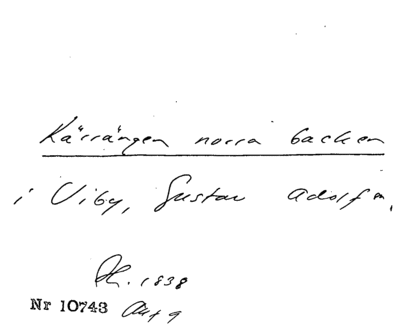 Kärrängen norra backen
i Viby, Gustav Adolf sn.
Ph. 1838
Nr 10743 Akt 9